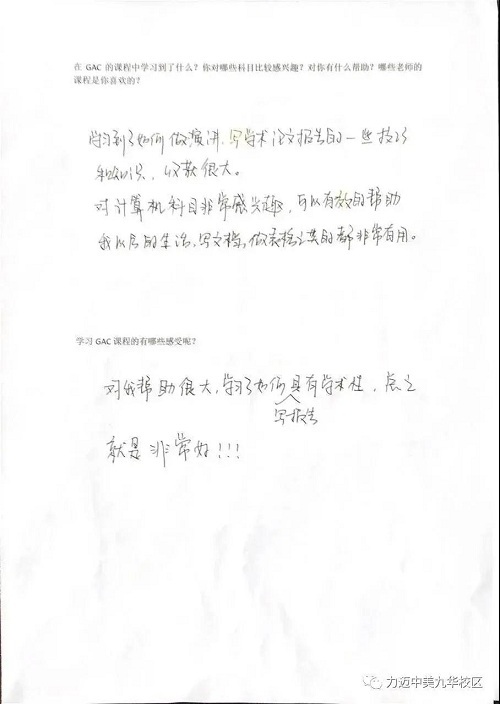 在 GAC 的课程中学习到了什么？你对哪些科目比较感兴趣？对你有什么帮助？哪些老师的
课程是你喜欢的？
学习到了如何做演讲，写学术论文报告的一些技巧
和知识，收获很大。
对计算机科目非常感兴趣，可以有效的帮助
我以后的生活，写文档，做表格之类的都非常有用。
学习 GAC 课程的有哪些感受呢？
对我帮助很大，学习了如何具有学术性，总之
写报告
就是非常好！！！
力迈中美九华校区